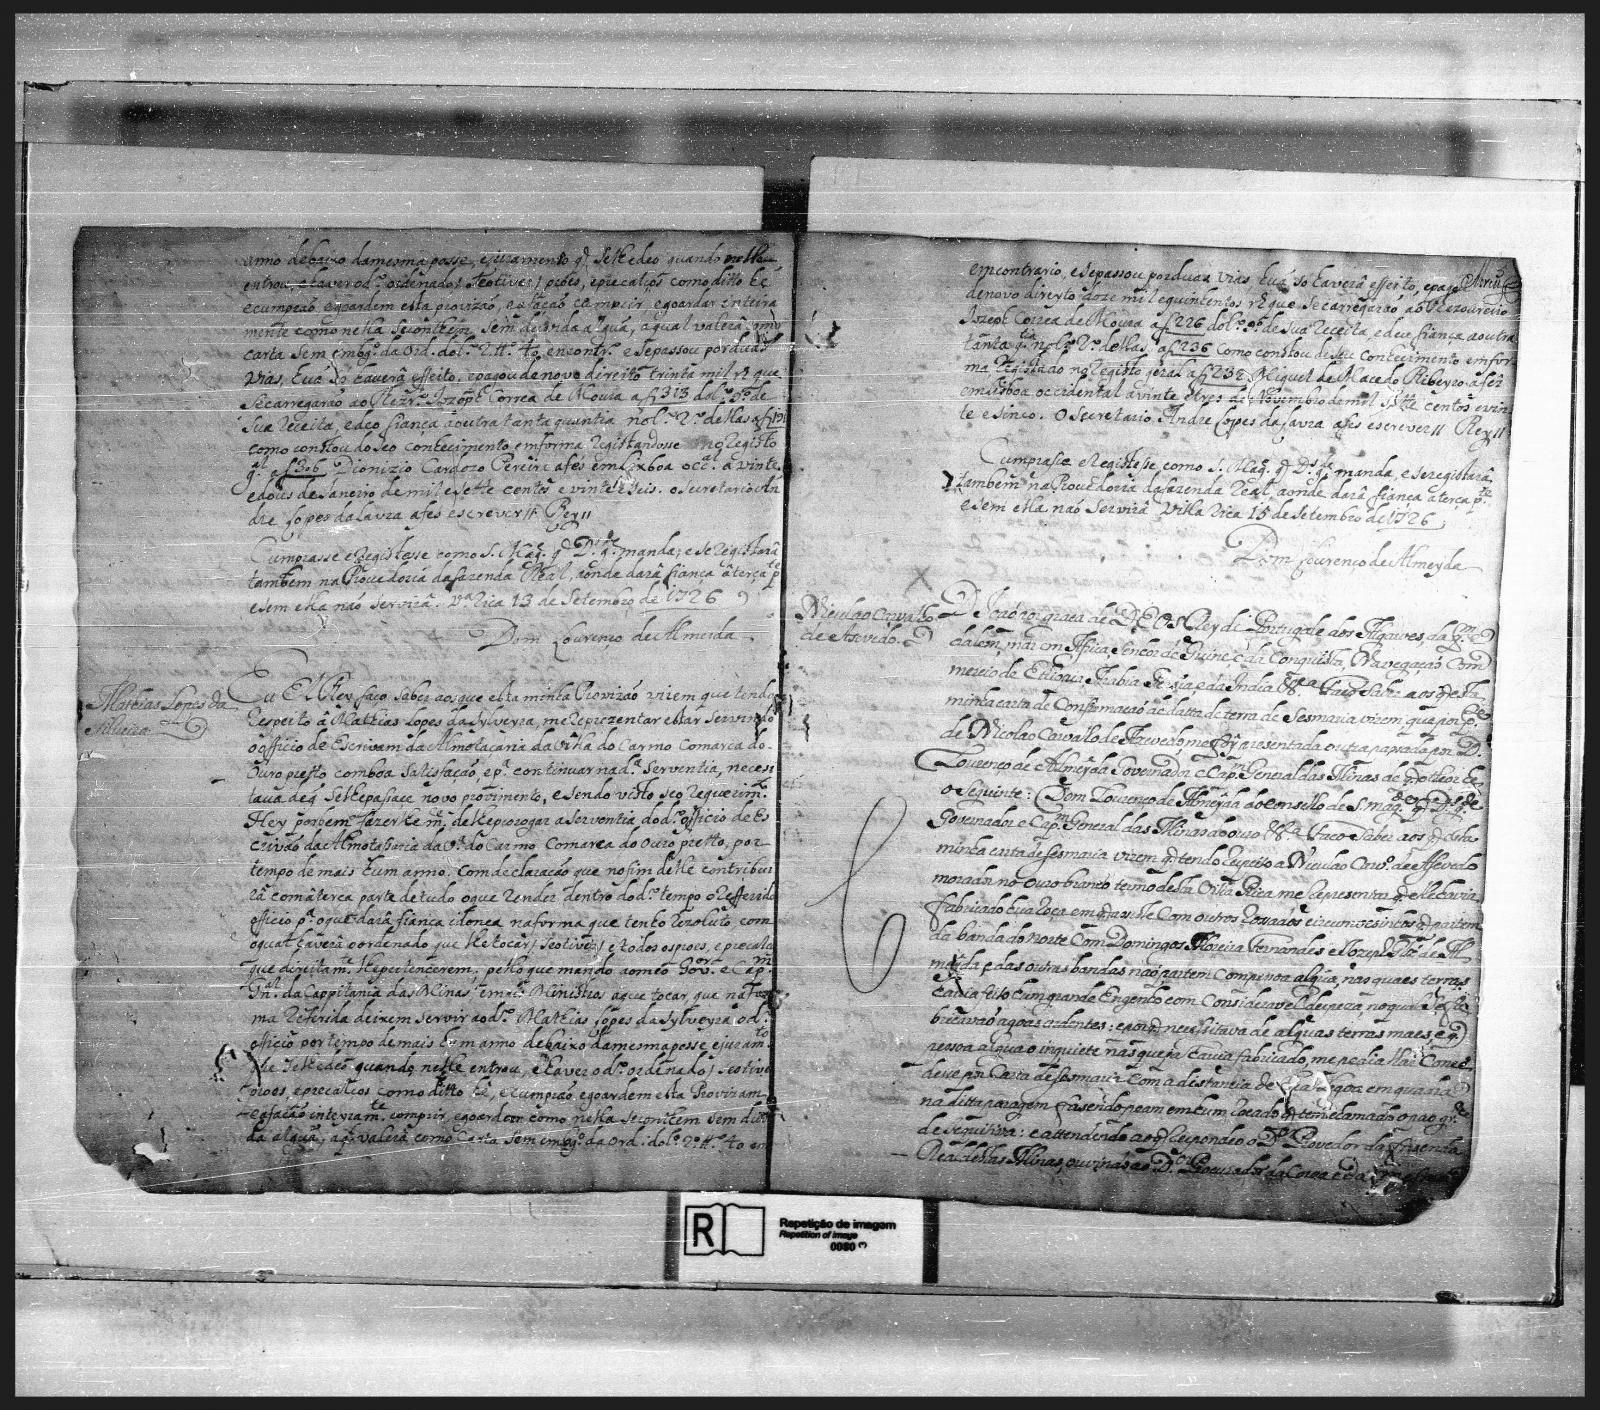 anno debaixo damesma posse, ejuramento q̃ selhedeo quando nelle
entrou, ehaver od.º ordenado (seotiver) proes, eprecalços como ditto hé
ecumpraõ egoardem esta provizaõ, efaçaõ cumprir, egoardar inteira
mente como nella seconthem, sem duvida algũa, aqual valerâ como
carta sem embg.º da Ord. dol.º 2. tt.º 40 encontr.º e sepassou porduas
vias, hũa só haverâ effeito, epagou denovo direito trinta mil rˢ que
secarregaraõ ao Thezr.º Jozeph Correa de Moura a f 313 dol.º 9.º de
sua receita, edeo fiança aoutra tanta quantia nol.º 2.º dellas a f 191
como constou doseo conhecimento emforma registandosse no Registo
g.ᵃˡ a f 306 Dionizio Cardozo Pereira afés em Lixboa occ.ᵃˡ a vinte
edous de Janeiro de mil e sette centos e vinte e seis. o secretario An
dre Lopes dalavra afés escrever // Rey //
Cumprasse e Registesse como S. Mag.ᵉ q̃ D.ˢ g.ᵉ manda; e se registarâ
tambem na Provedoria dafazenda Real, aonde darâ fiança áterça p.ᵗᵉ
esem ella naõ servirâ. V.ᵃ Rica 13 de Setembro de 1726
Dom Lourenço de Almeida
Mathias Lopes da
Silveira
Eu El Rey faço saber aosque esta minha Provizaõ virem que tendo
respeito â Mathias Lopes da Sylveyra, me reprezentar estar servindo
o officio de Escrivam da Almotaçaria da Villa do Carmo Comarca do
Ouro pretto comboa satisfaçaõ, ep.ᵃ continuar nad.ᵃ serventia, necesi
tava deq̃ selhepasace novo provimento, e sendo visto seo requerim.ᵗᵒ
Hey porbem fazerlhe m.ᶜᵉ delheprorogar a serventia dod.º officio de Es
crivaõ da Almotassaria da V.ᵃ do Carmo Comarca do Ouro pretto, por
tempo de mais hum anno, com declaraçaõ que nofim delle contribui
râ coma terça parte detudo oque render dentro dod.º tempo o refferido
officio p.ᵃ oque darâ fiança idonea na forma que tenho rezoluto, com
oqual haverâ oordenado que lhetocar (seotiver) e todos osproes, e precalços
que direitam.ᵗᵉ lhepertencerem; pello que mando aomeo Gov.ᵒʳ e Cap.ᵐ
Gn.ᵃˡ da Cappitania das Minas, emais Ministros aque tocar, que na for
ma referida deixem servir aod.º Mathias Lopes da Sylveyra od.º
officio por tempo de mais hum anno debaixo damesma posse ejuram.ᵗᵒ
que selhedeo quando nelle entrou, ehaver od.º ordenado (seotiver)
proes, eprecalços como ditto hé, ecumpraõ, egoardem esta Provizam
efaçaõ inteyram.ᵗᵉ cumprir, egoardar como nella secontem sem duvi
da algũa, aq.ˡ valerâ como Carta sem embg.º da Ord. dol.º 2.º tt.º 40 em
emcontrario, e sepassou porduas vias hũa só haverâ effeito, epagou
denovo direyto doze mil equinhentos rˢ que secarregaraõ ao Thezoureiro
Jozeph Correa de Moura a f 226 dol.º 9.º de sua receita, e deu fiança aoutra
tanta q.ᵗⁱᵃ nol.º 2.º dellas, a f 236 como constou deseu conhecimento emfor
ma registado no registo geral a f 232 Miguel de Macedo Ribeyro afez
em Lisboa occidental avinte etres de Novembro de mil sette centos e vin
te e sinco. O Secretario Andre Lopes da Lavra afes escrever // Rey //
Cumprasse e Registesse como S. Mag.ᵉ q̃ D.ˢ g.ᵉ manda, e seregistarâ
tambem na Provedoria dafazenda Real, aonde darâ fiança a terça p.ᵗᵉ
esem ella naõ servirâ Villa Rica 15 de Setembro de 1726
Dom Lourenço de Almeyda
Nicolao Carvalho
de Azevedo.
D. Joaõ por graça de D.ˢ Rey de Portugal e dos Algarves, da q.ᵐ e
dalem, mar em Africa, senhor de Guiné, e da Conquista, Navegaçaõ Com
mercio de Ethiopia, Arabia, Persia, e da India &.ᵃ Faço saber aos q̃ esta
minha carta de Confirmaçaõ de datta de terra de Sesmaria virem que por p.ᵗᵉ
de Nicolao Carvalho de Azevedo me foy apresentada outra passada por D.
Lourenço de Almeyda Governador e Cap.ᵐ General das Minas de q̃ o theor he
o seguinte: Dom Lourenço de Almeyda do conselho de S. Mag.ᵉ q̃ D.ˢ g.ᵉ
Governador e Cap.ᵐ General das Minas do ouro &.ᵃ Faço saber aos q̃ esta
minha carta de sesmaria virem q̃ tendo respeito a Nicolao Carv.º de Azevedo
morador no Ouro branco termo desta Villa Rica me representar q̃ elle havia
fabricado hũa roça em q̃ assiste com outros roçados circumvezinhos q̃ partem
da banda do norte Com Domingos Moreira Fernandes e Jozeph de Al
meyda, e das outras bandas naõ partem com pessoa algũa, nas quaes terras
havia feito hum grande Engenho com Consideravel despeza, no qual se fa
bricavaõ agoas ardentes: e porq̃ necessitava de algũas terras mais, e q̃
pessoa algũa o inquiete nas que ja havia fabricado, me pedia lhas Conce
desse por Carta de sesmaria com a distancia de hũa legoa em quadra
na ditta paragem fasendo peam em hum roçado q̃ tem chamado o pao gr.ᵈᵉ
de sequitiva: e attendendo ao q̃ respondeo o D.ᵒʳ Provedor da fazenda
Real destas Minas, ouvindo ao D.ᵒʳ Procurador da Coroa e da
Repetição de imagem
Repetition of image
0080 (*)
R